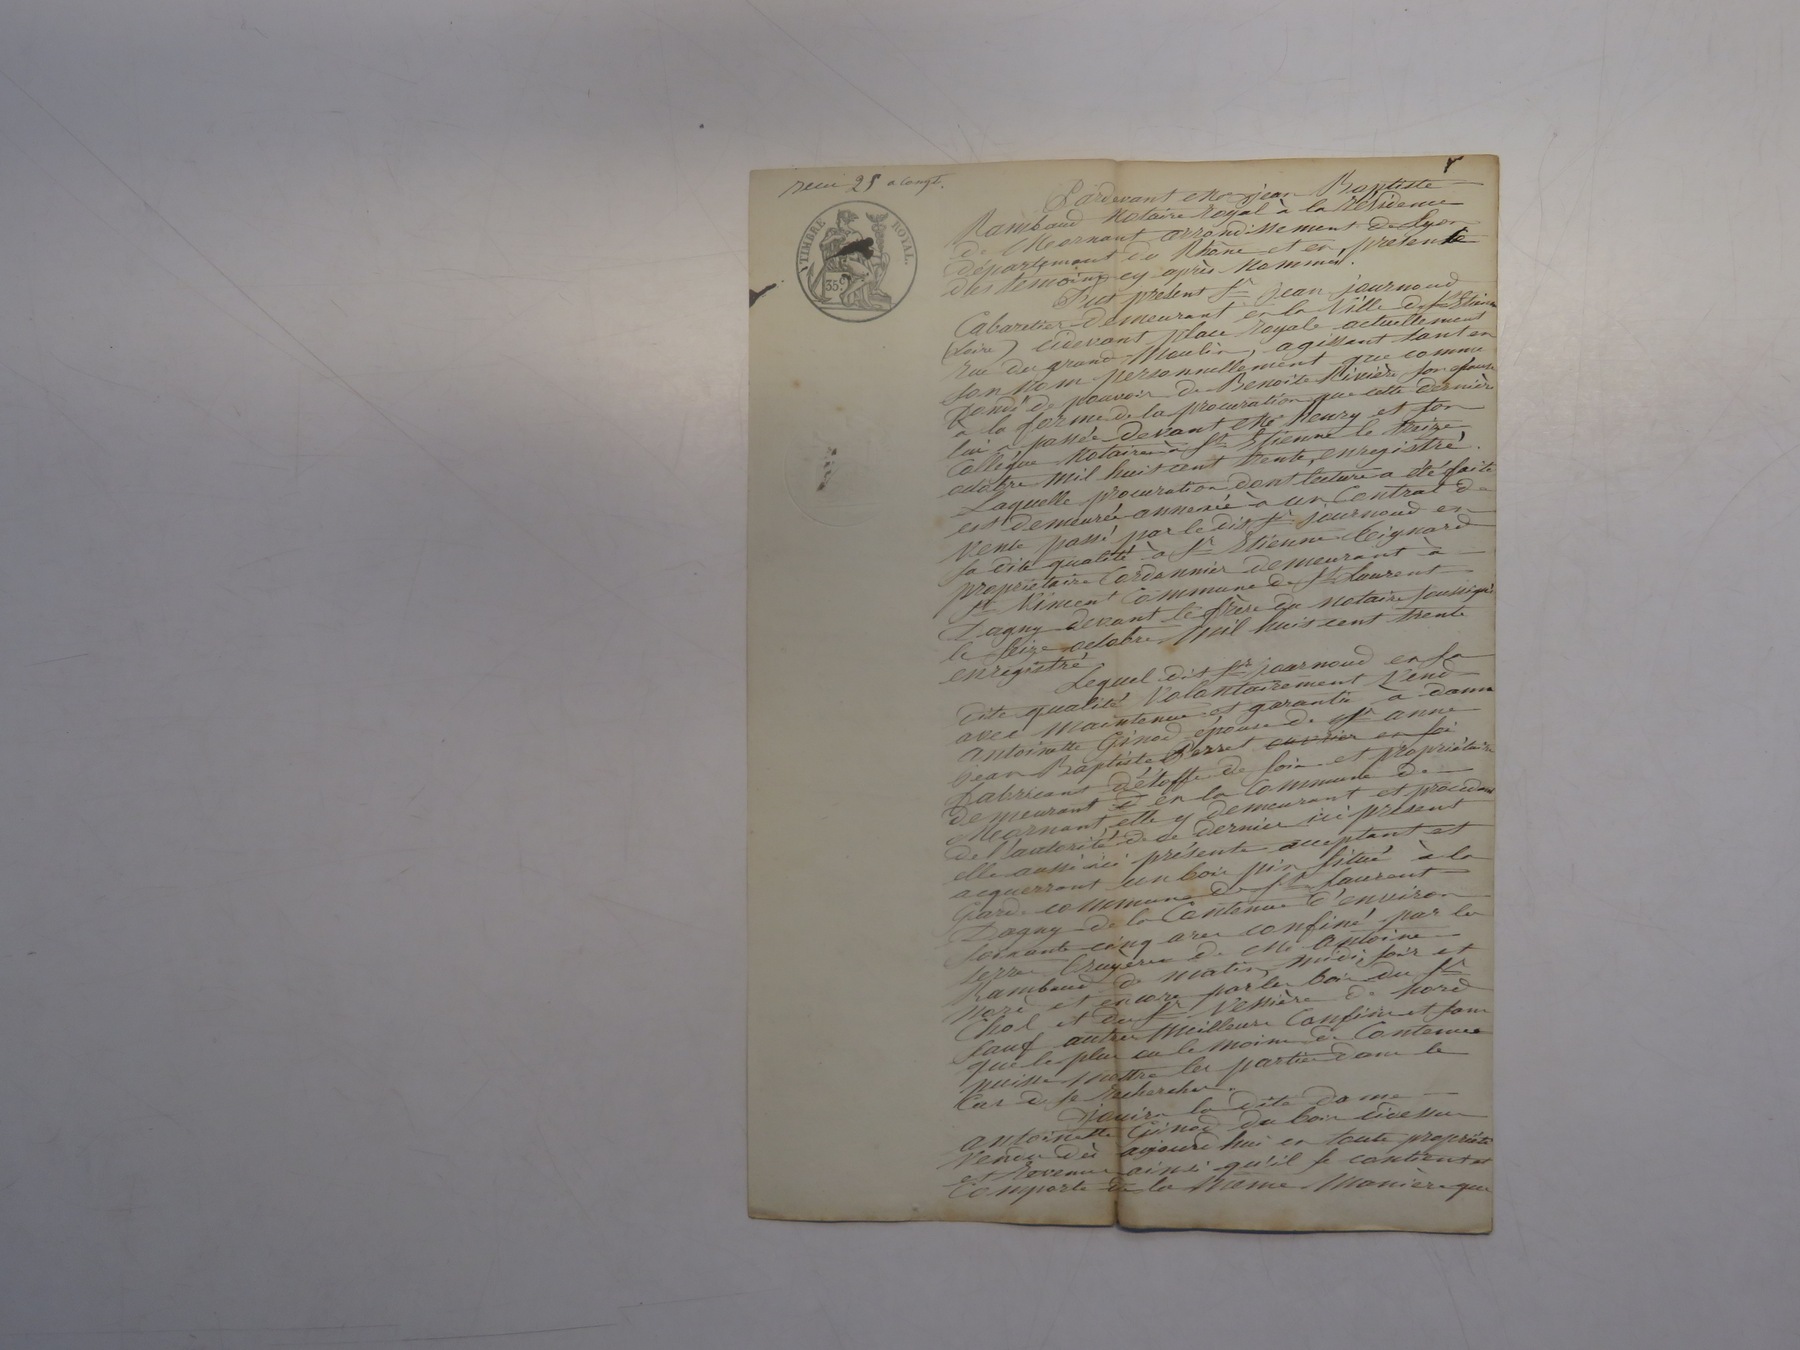 recu 25 a compt.
TIMBRE ROYAL.
35 c
Pardevant Me jean Baptiste
Rambaud Notaire Royal à la Résidence
de Mornant arrondissement de Lyon
département du Rhône et en présence
des témoins cy après nommés.
Fut présent Sr jean journoud
Cabaretier demeurant en la Ville de St Etienne
(Loire) cidevant place Royale actuellement
rue du grand Moulin, agissant tant en
son nom personnellement que comme
fondé de pouvoir de Benoite Rivière son épouse
à la forme de la procuration que cette dernière
lui a passée devant Me Fleury et son
Collégue Notaires à St Etienne le treize
octobre mil huit cent trente, enregistré.
Laquelle procuration dont lecture a été faite
est demeurée annexée à un Contrat de
Vente passé par le dit Sr journoud en
sa dite qualité à Sr Etienne
propriétaire Cordonnier demeurant à
St Vincent Commune de St Laurent
Dagny devant le frère du notaire soussigné
le seize octobre mil huit cent trente
enregistré
Lequel dit Sr journoud en sa
dite qualité Volontairement Vend
avec maintenue et garantie à dame
Antoinette Ginod épouse de Sr anne
jean Baptiste Perret ouvrier en soi
fabricant d'étoffe de soie et propriétaire
demeurant en la Commune de
Mornant elle y demeurant et procédant
de l'autorité de ce dernier ici présent
elle aussi ici présente acceptant et
acquerrant un bois pin situé à la
Garde commune de St Laurent
Dagny de la Contenue d'environ
soixante cinq ares confiné par la
terre bruyère de Me Antoine
Rambaud de matin, midi, soir et
nord et encore par les bois du Sr
Chol et du Sr Vessière de nord
Sauf autres meilleurs Confins et sans
que le plus ou le moins de Contenue
puisse mettre les parties dans le
Cas de se rechercher.
Jouira la dite dame
antoinette Ginod du bois cidessus
Vendu dès aujourd'hui en toute propriété
et Revenus ainsi qu'il se contient et
Comporte de la même Manière que